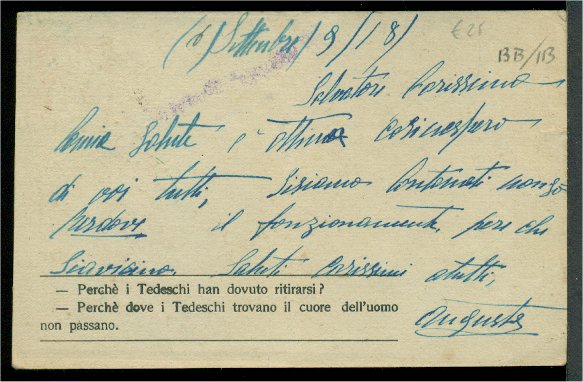 (6) Settembre / 9 / 18 /
€25
BB/1B
Salvatore Carissimo
la mia Salute è ottima così spero
di voi tutti,
il fonzionamento pere che
Siavicino. Saluti Carissimi atutti,
Augusto
— Perchè i Tedeschi han dovuto ritirarsi?
— Perchè dove i Tedeschi trovano il cuore dell'uomo
non passano.